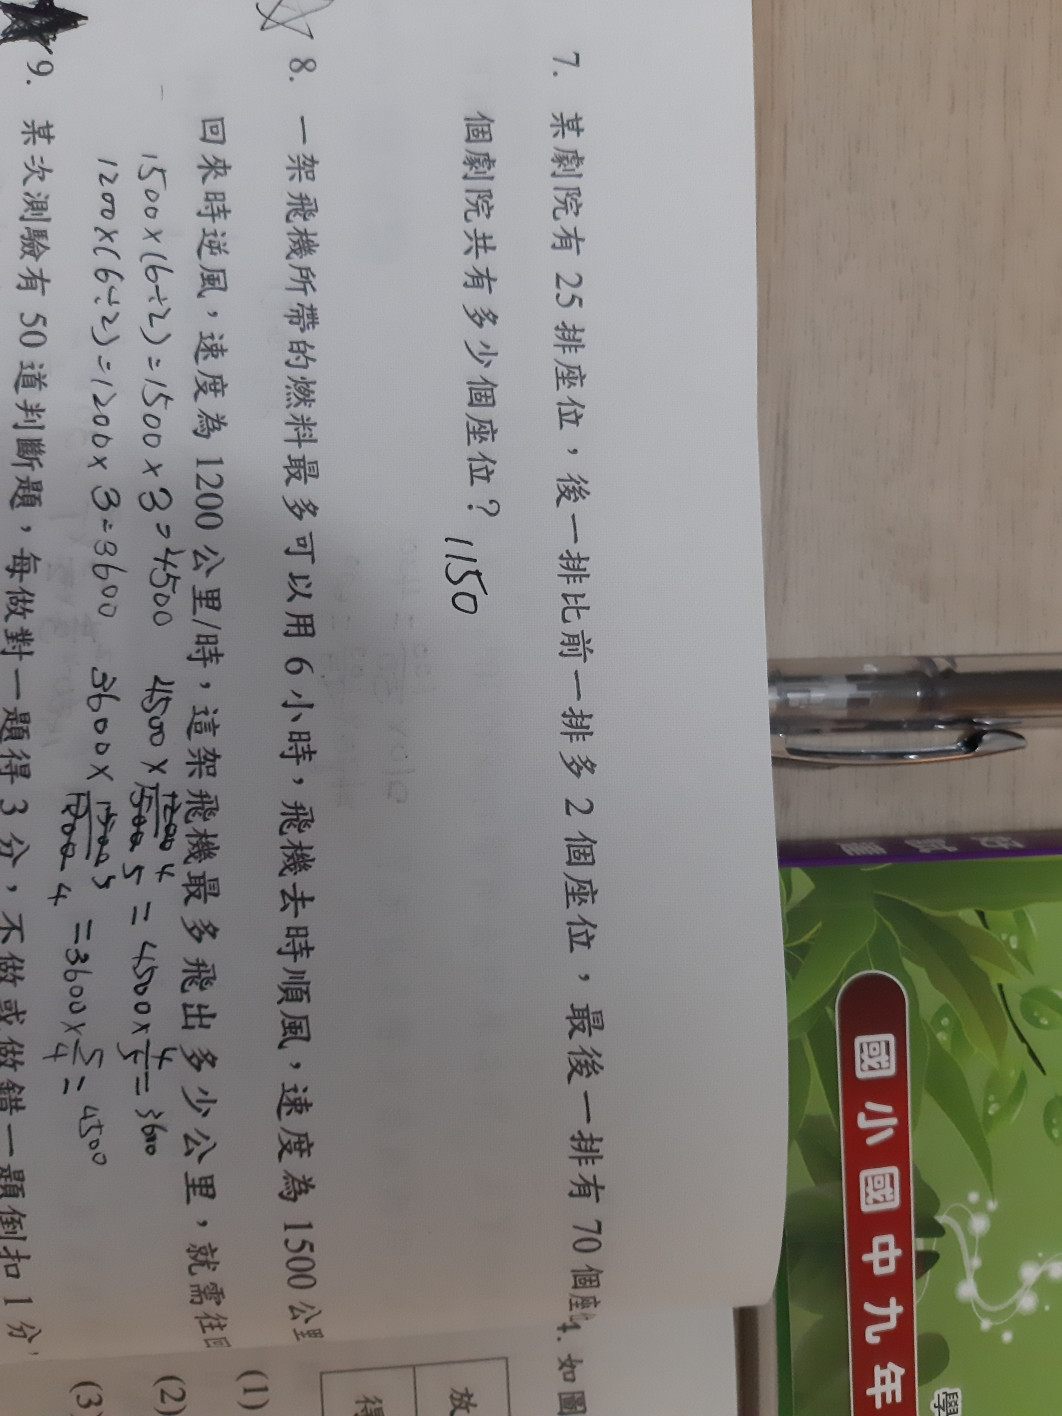 7. 某劇院有 25 排座位，後一排比前一排多 2 個座位，最後一排有 70 個座
個劇院共有多少個座位？ 1150
8. 一架飛機所帶的燃料最多可以用 6 小時，飛機去時順風，速度為 1500 公里
回來時逆風，速度為 1200 公里/時，這架飛機最多飛出多少公里，就需往回
1500×(6÷2)=1500×3=4500 4500×1200 4/1500 5=4500×4/5=3600
1200×(6÷2)=1200×3=3600 3600×1500 5/1200 4=3600×5/4=4500
9. 某次測驗有 50 道判斷題，每做對一題得 3 分，不做或做錯一題倒扣 1 分，
4. 如圖
放
得
(1)
(2)
(3)
國小國中九年
學